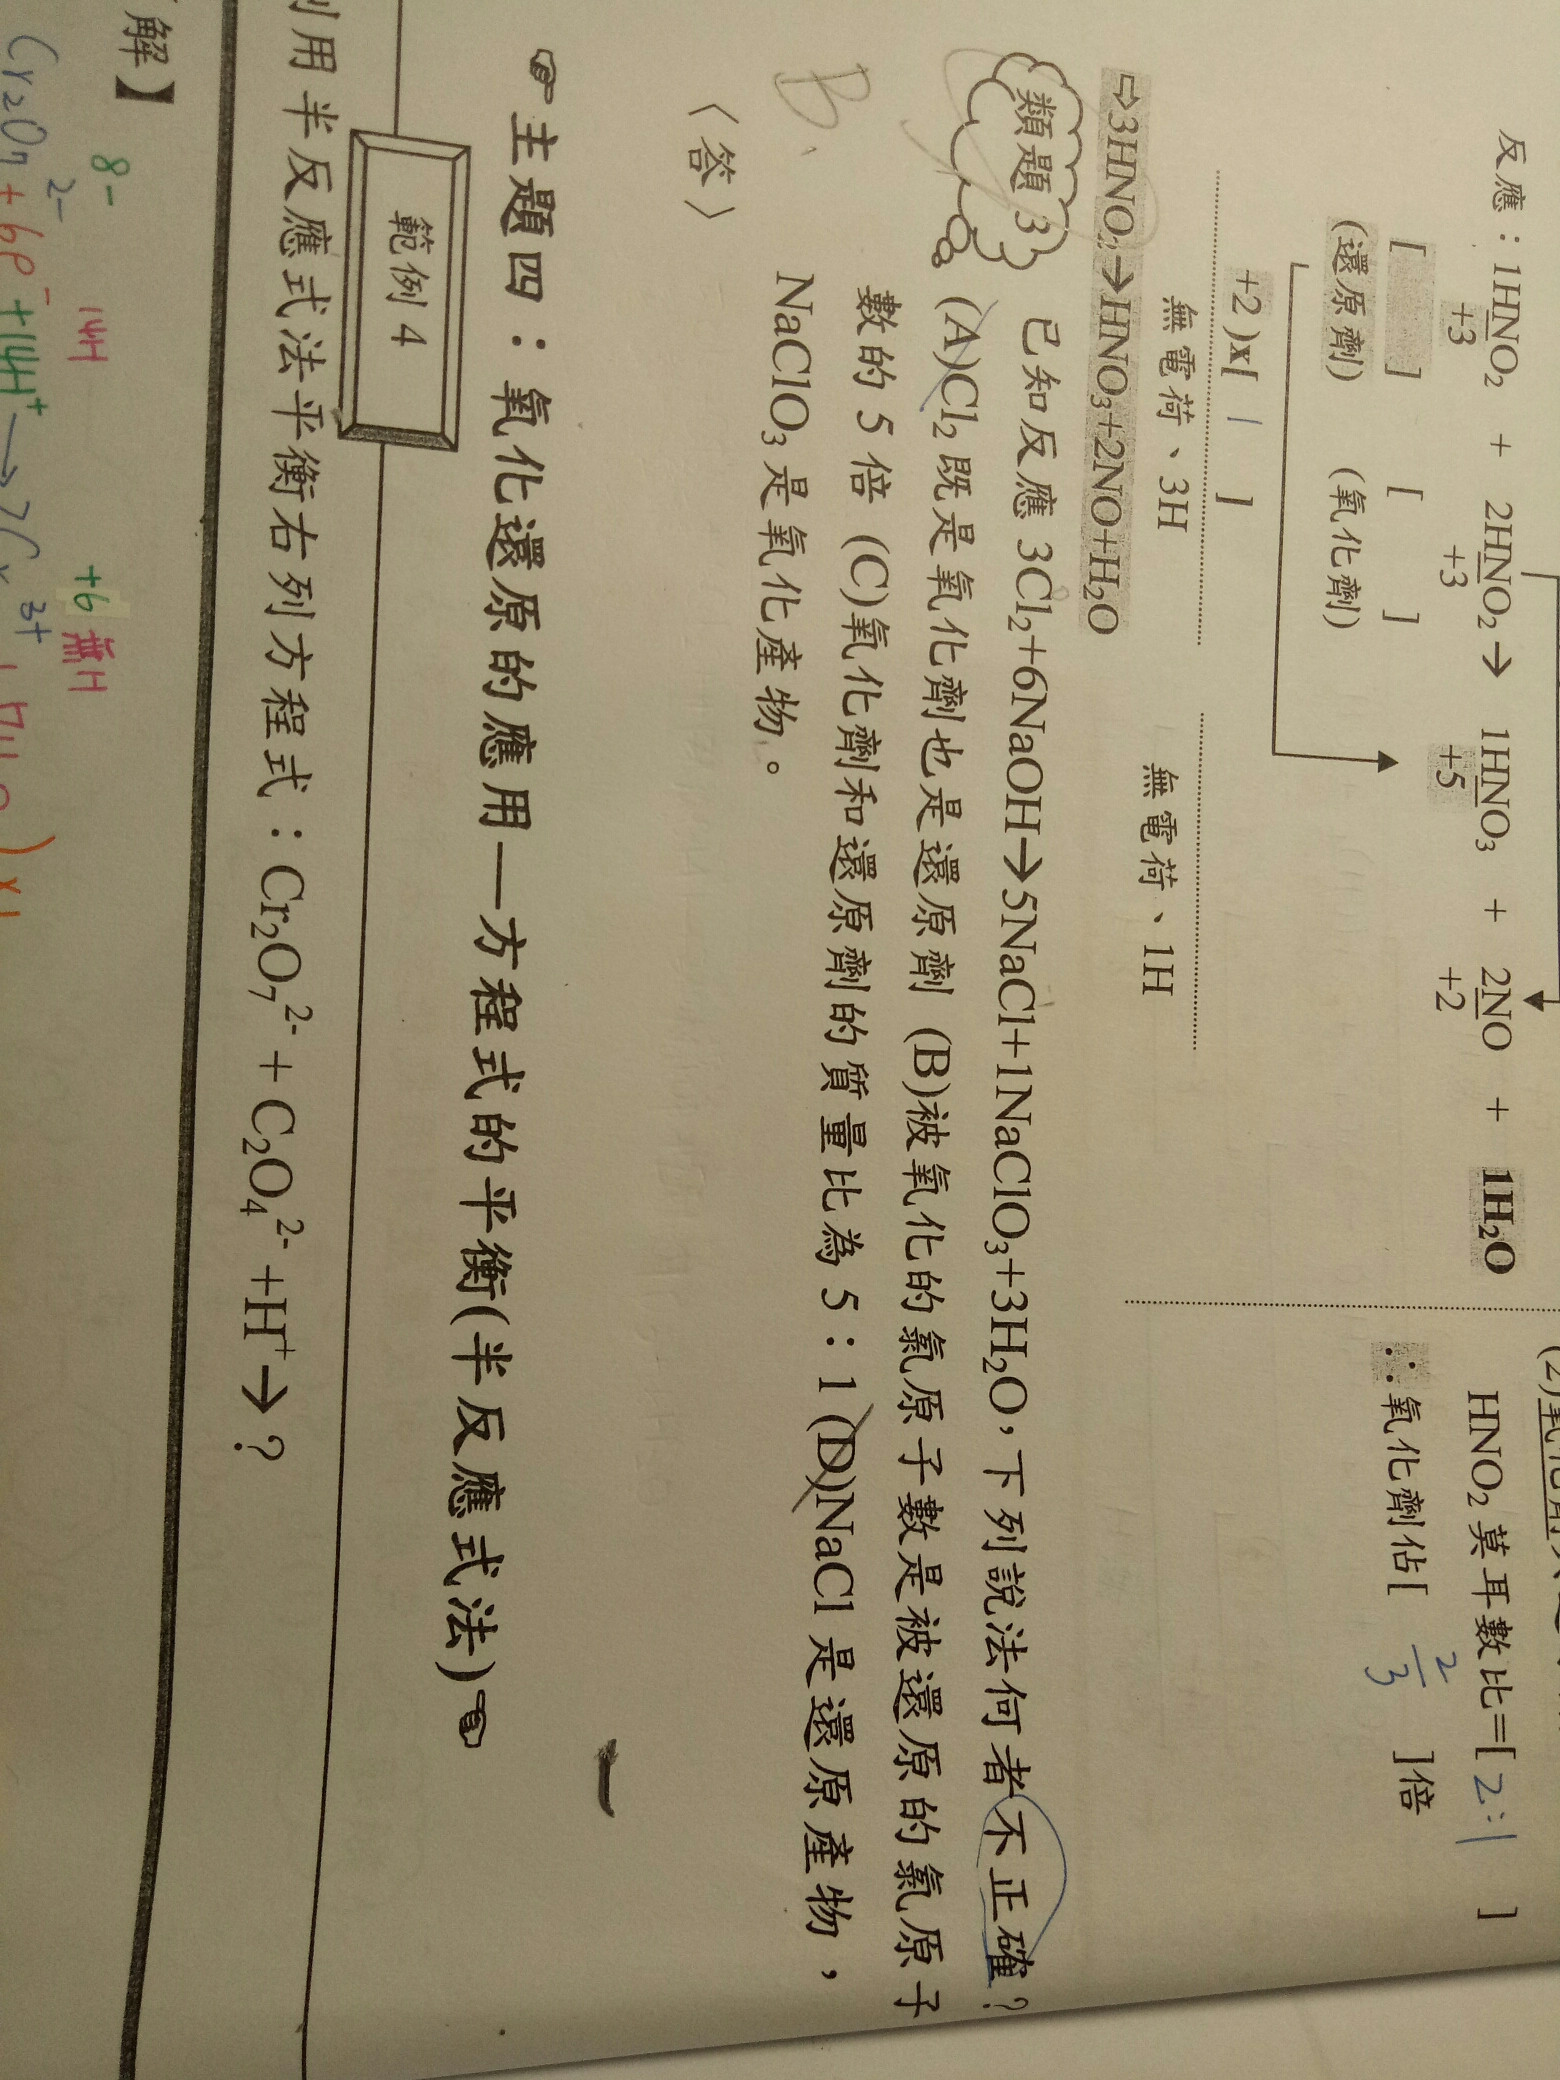 (2)
反應：1HNO₂ + 2HNO₂→ 1HNO₃ + 2NO + 1H₂O
+3 +3 +5 +2
HNO₂莫耳數比=[ 2:1 ]
[ ] [ ]
(還原劑) (氧化劑)
∴氧化劑佔[ 2/3 ]倍
+2 )x[ 1 ]
無電荷、3H 無電荷、1H
⇨3HNO₂→HNO₃+2NO+H₂O
類題 3 已知反應 3Cl₂+6NaOH→5NaCl+1NaClO₃+3H₂O，下列說法何者不正確？
(A)Cl₂既是氧化劑也是還原劑 (B)被氧化的氯原子數是被還原的氯原子
數的 5 倍 (C)氧化劑和還原劑的質量比為 5：1 (D)NaCl 是還原產物，
NaClO₃是氧化產物。
B、
〈答〉
☞主題四：氧化還原的應用—方程式的平衡(半反應式法)☜
範例 4
用半反應式法平衡右列方程式：Cr₂O₇²⁻ + C₂O₄²⁻ +H⁺→？
解】
8- 14H +6 無H
Cr₂O₇²⁻ + 6e⁻ +14H⁺ →2Cr³⁺